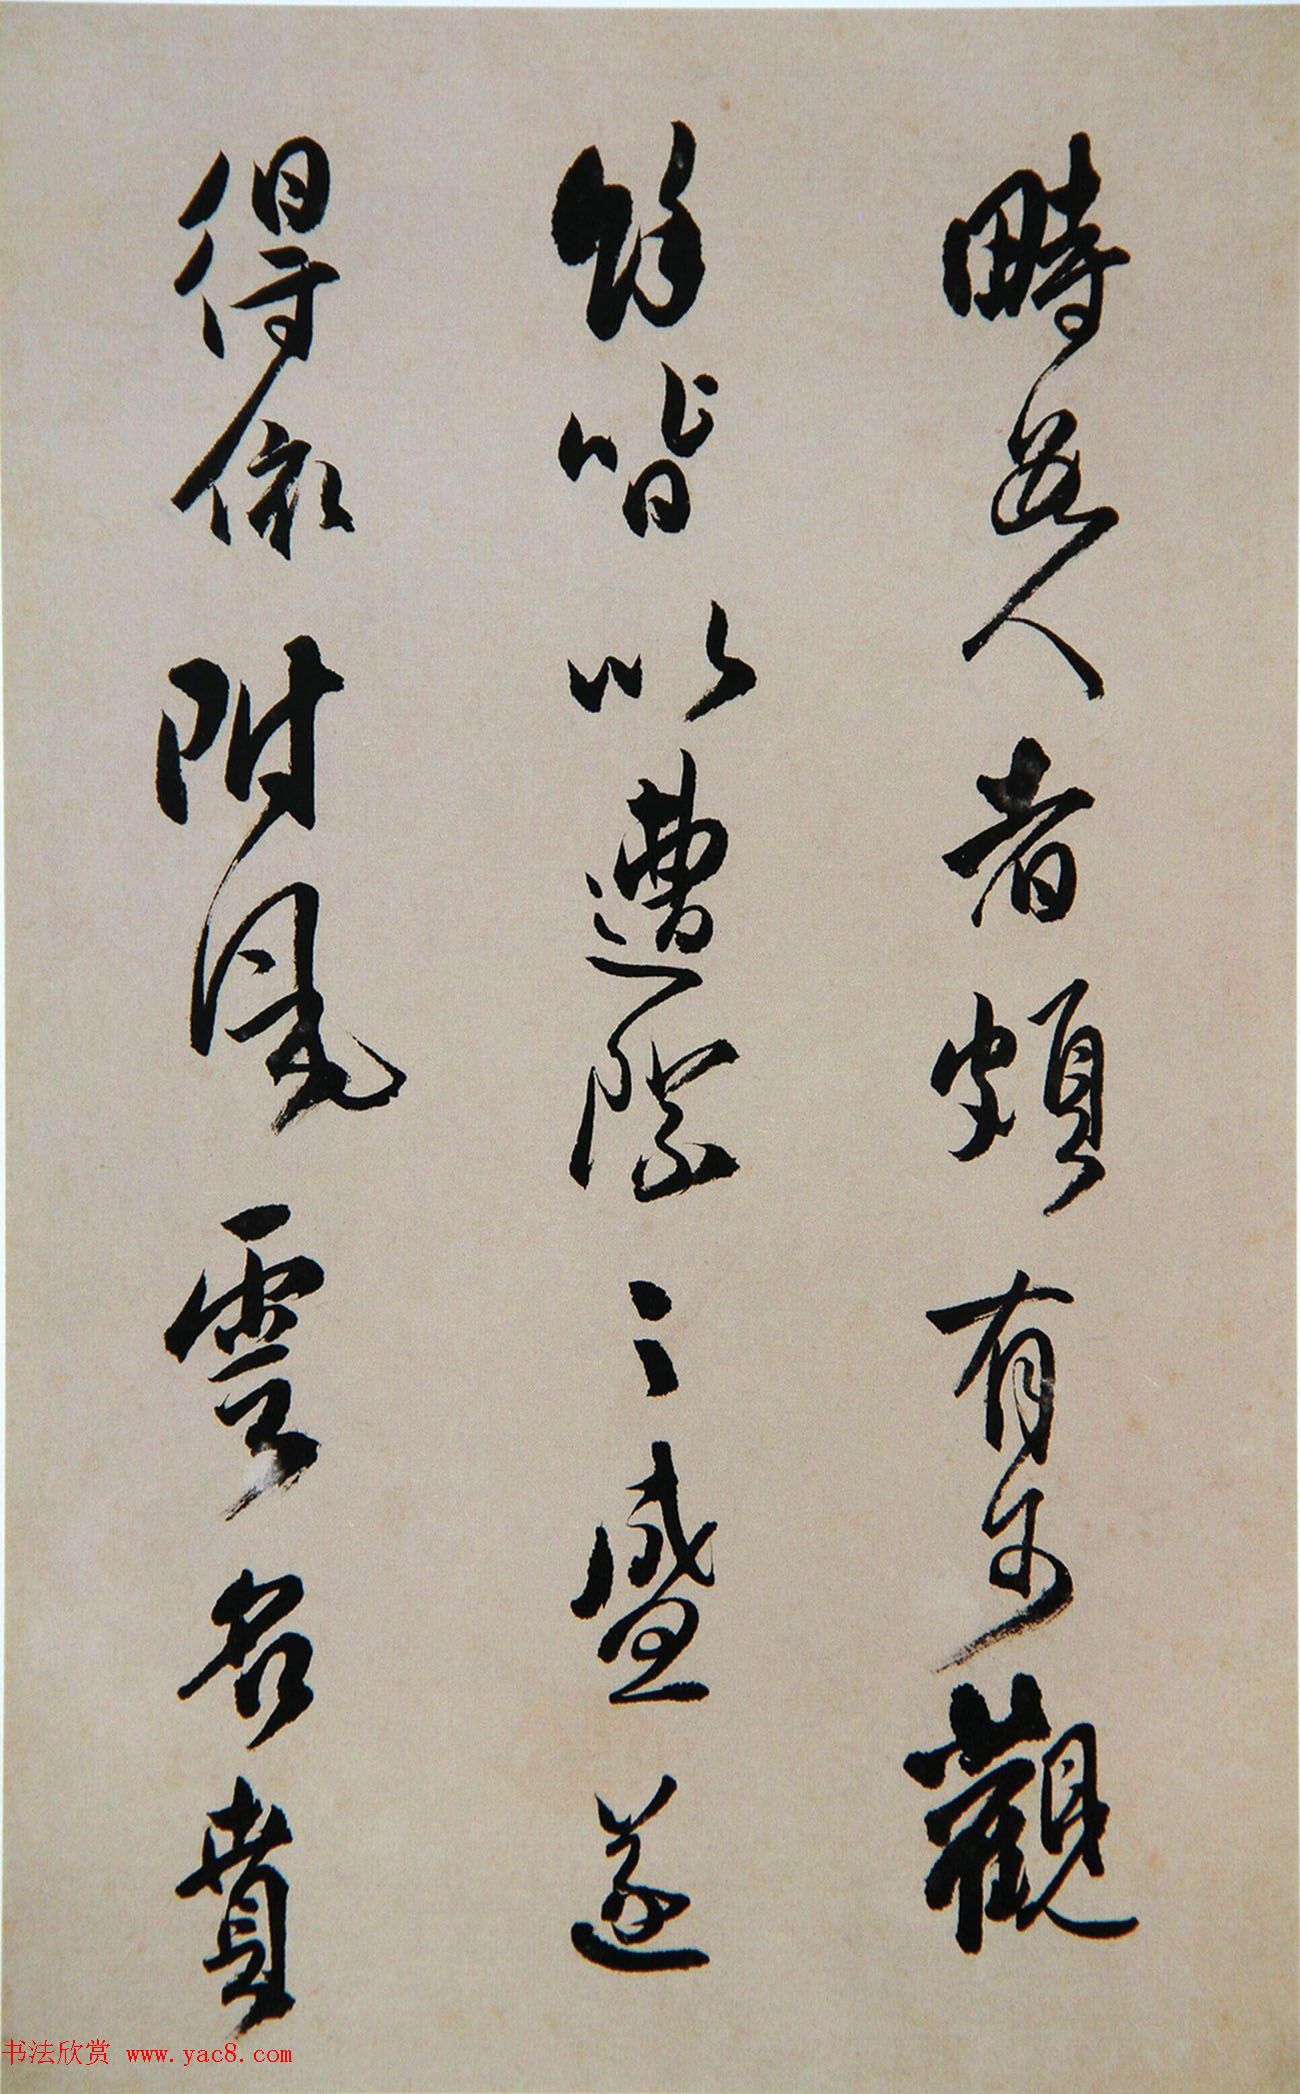 時過人者頗有可觀
餘皆以遭際之盛遂
得依附風雲名賁
书法欣赏 www.yac8.com